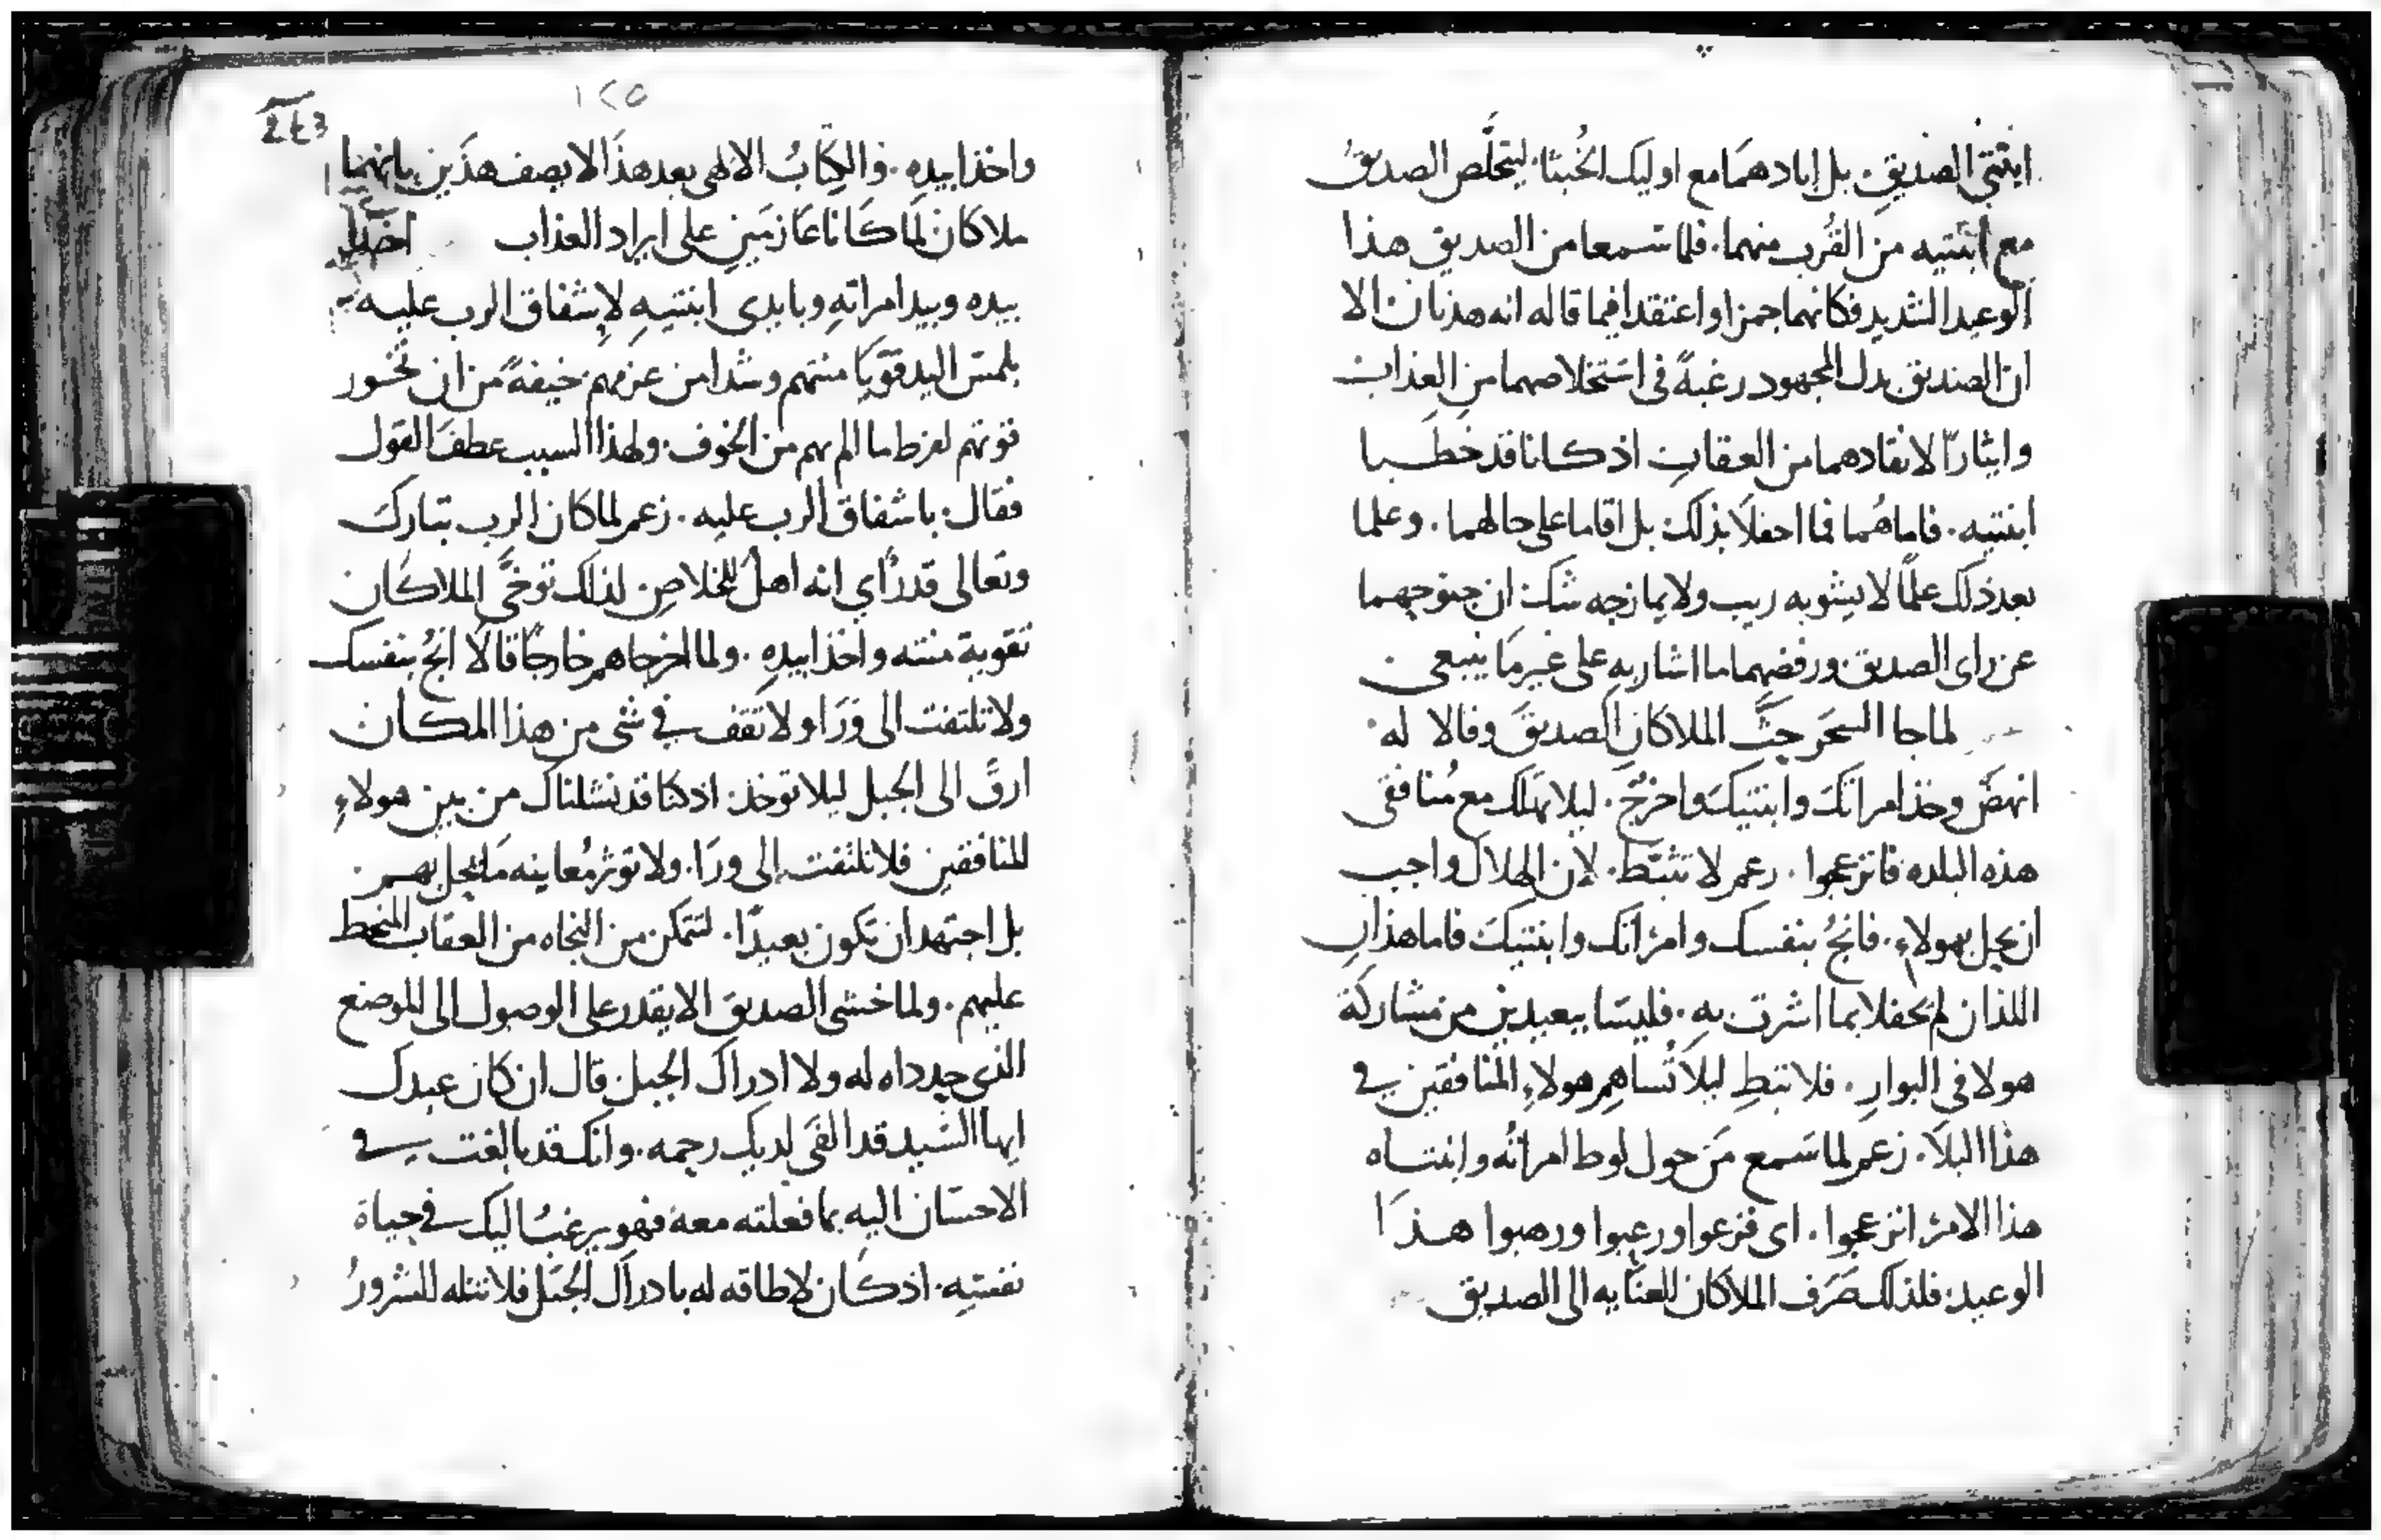 ابنتي الصديق. بل ابادهما مع اوليك الخبثا. ليتخلص الصديق
مع ابنتيه من القرب منهما. فلما سمعا من الصديق هذا
الوعيد الشديد فكانهما جمزا واعتقدا فيما قاله انه هذيان الا
ان الصديق بدل المجهود رغبةً في استخلاصهما من العذاب
وايثارًا لانقادهما من العقاب اذ كانا قد خطبا
ابنتيه. فاما هُما فما احفلا بذلك بل اقاما على حالهما. وعلما
بعد ذلك علمًا لا يشوبه ريب ولا يمازجه شك ان جنوحهما
عن راى الصديق ورفضهما ما اشار به على غير ما ينبغي
لما جا السحر حثَّ الملاكان الصديق وقالا له
انهض وخذ امراتك وابنتيك واخرج. ليلا تهلك مع مُنافقى
هذه البلده فانزعجوا. زعم لا تثبّط. لان الهلاك واجب
ان يحل بهولاء. فانجُ بنفسك وامراتك وابنتيك فاما هذان
اللذان لم يحفلا بما اشرت به. فليسا ببعيدين من مشاركة
هولا في البوار. فلا تبتط ليلا تُساهم هولاء المنافقين في
هذا البلا. زعم لما سمع من حول لوط امراته وابنتاه
هذا الامر انزعجوا. اى فزعوا ورعبوا ورهبوا هذا
الوعيد. فلذلك صَرَف الملاكان للعنايه الى الصديق
١٢٥
واخذا بيده. والكتابُ الالهى بعد هذا لا يصف هذين بانهما
ملاكان لما كانا عازمين على ايراد العذاب اخذا
بيده وبيد امراته وبايدى ابنتيه لاشفاق الرب عليه
بلمس اليد قوّيا منتهم وشدا من عزمهم خيفةً من ان تخور
قوتهم لفرط ما الم بهم من الخوف. ولهذا السبب عطف القول
فقال. باشفاق الرب عليه. زعم لما كان الرب تبارك
وتعالى قد رأي انه اهلٌ للخلاص لذلك توخّى الملاكان
تقوية منته واخذا بيده. ولما اخرجاهم خارجًا قالا انجُ بنفسك
ولا تلتفت الى وَرَا ولا تقف في شى من هذا المكان
ارقَ الى الجبل ليلا توخذ. اذ كنا قد نشلناك من بين هولاءِ
المنافقين فلا تلتفت إلى ورَا. ولا توثر مُعاينه ما يحل بهم
بل اجتهد ان تكون بعيدًا. لتتمكن من النجاه من العقاب المنحط
عليهم. ولما خشى الصديق الا يقدر على الوصول الى الموضع
الذى حدداه له ولا ادراك الجبل قال ان كان عبدك
ايها السيد قد الفَى لديك رحمه. وانك قد بالغت في
الاحسان اليه بما فعلته معه فهو يرغب اليك في حياة
نفسه. اذ كان لا طاقه له بادراك الجبل فلا تنله الشرورُ